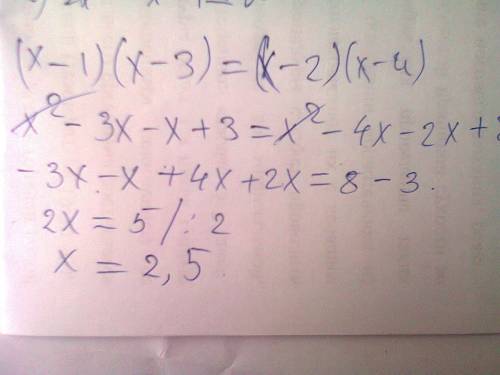 (x-1)(x-3)=(x-2)(x-4)
x²-3x-x+3=x²-4x-2x+
-3x-x+4x+2x=8-3.
2x=5/:2
x=2,5